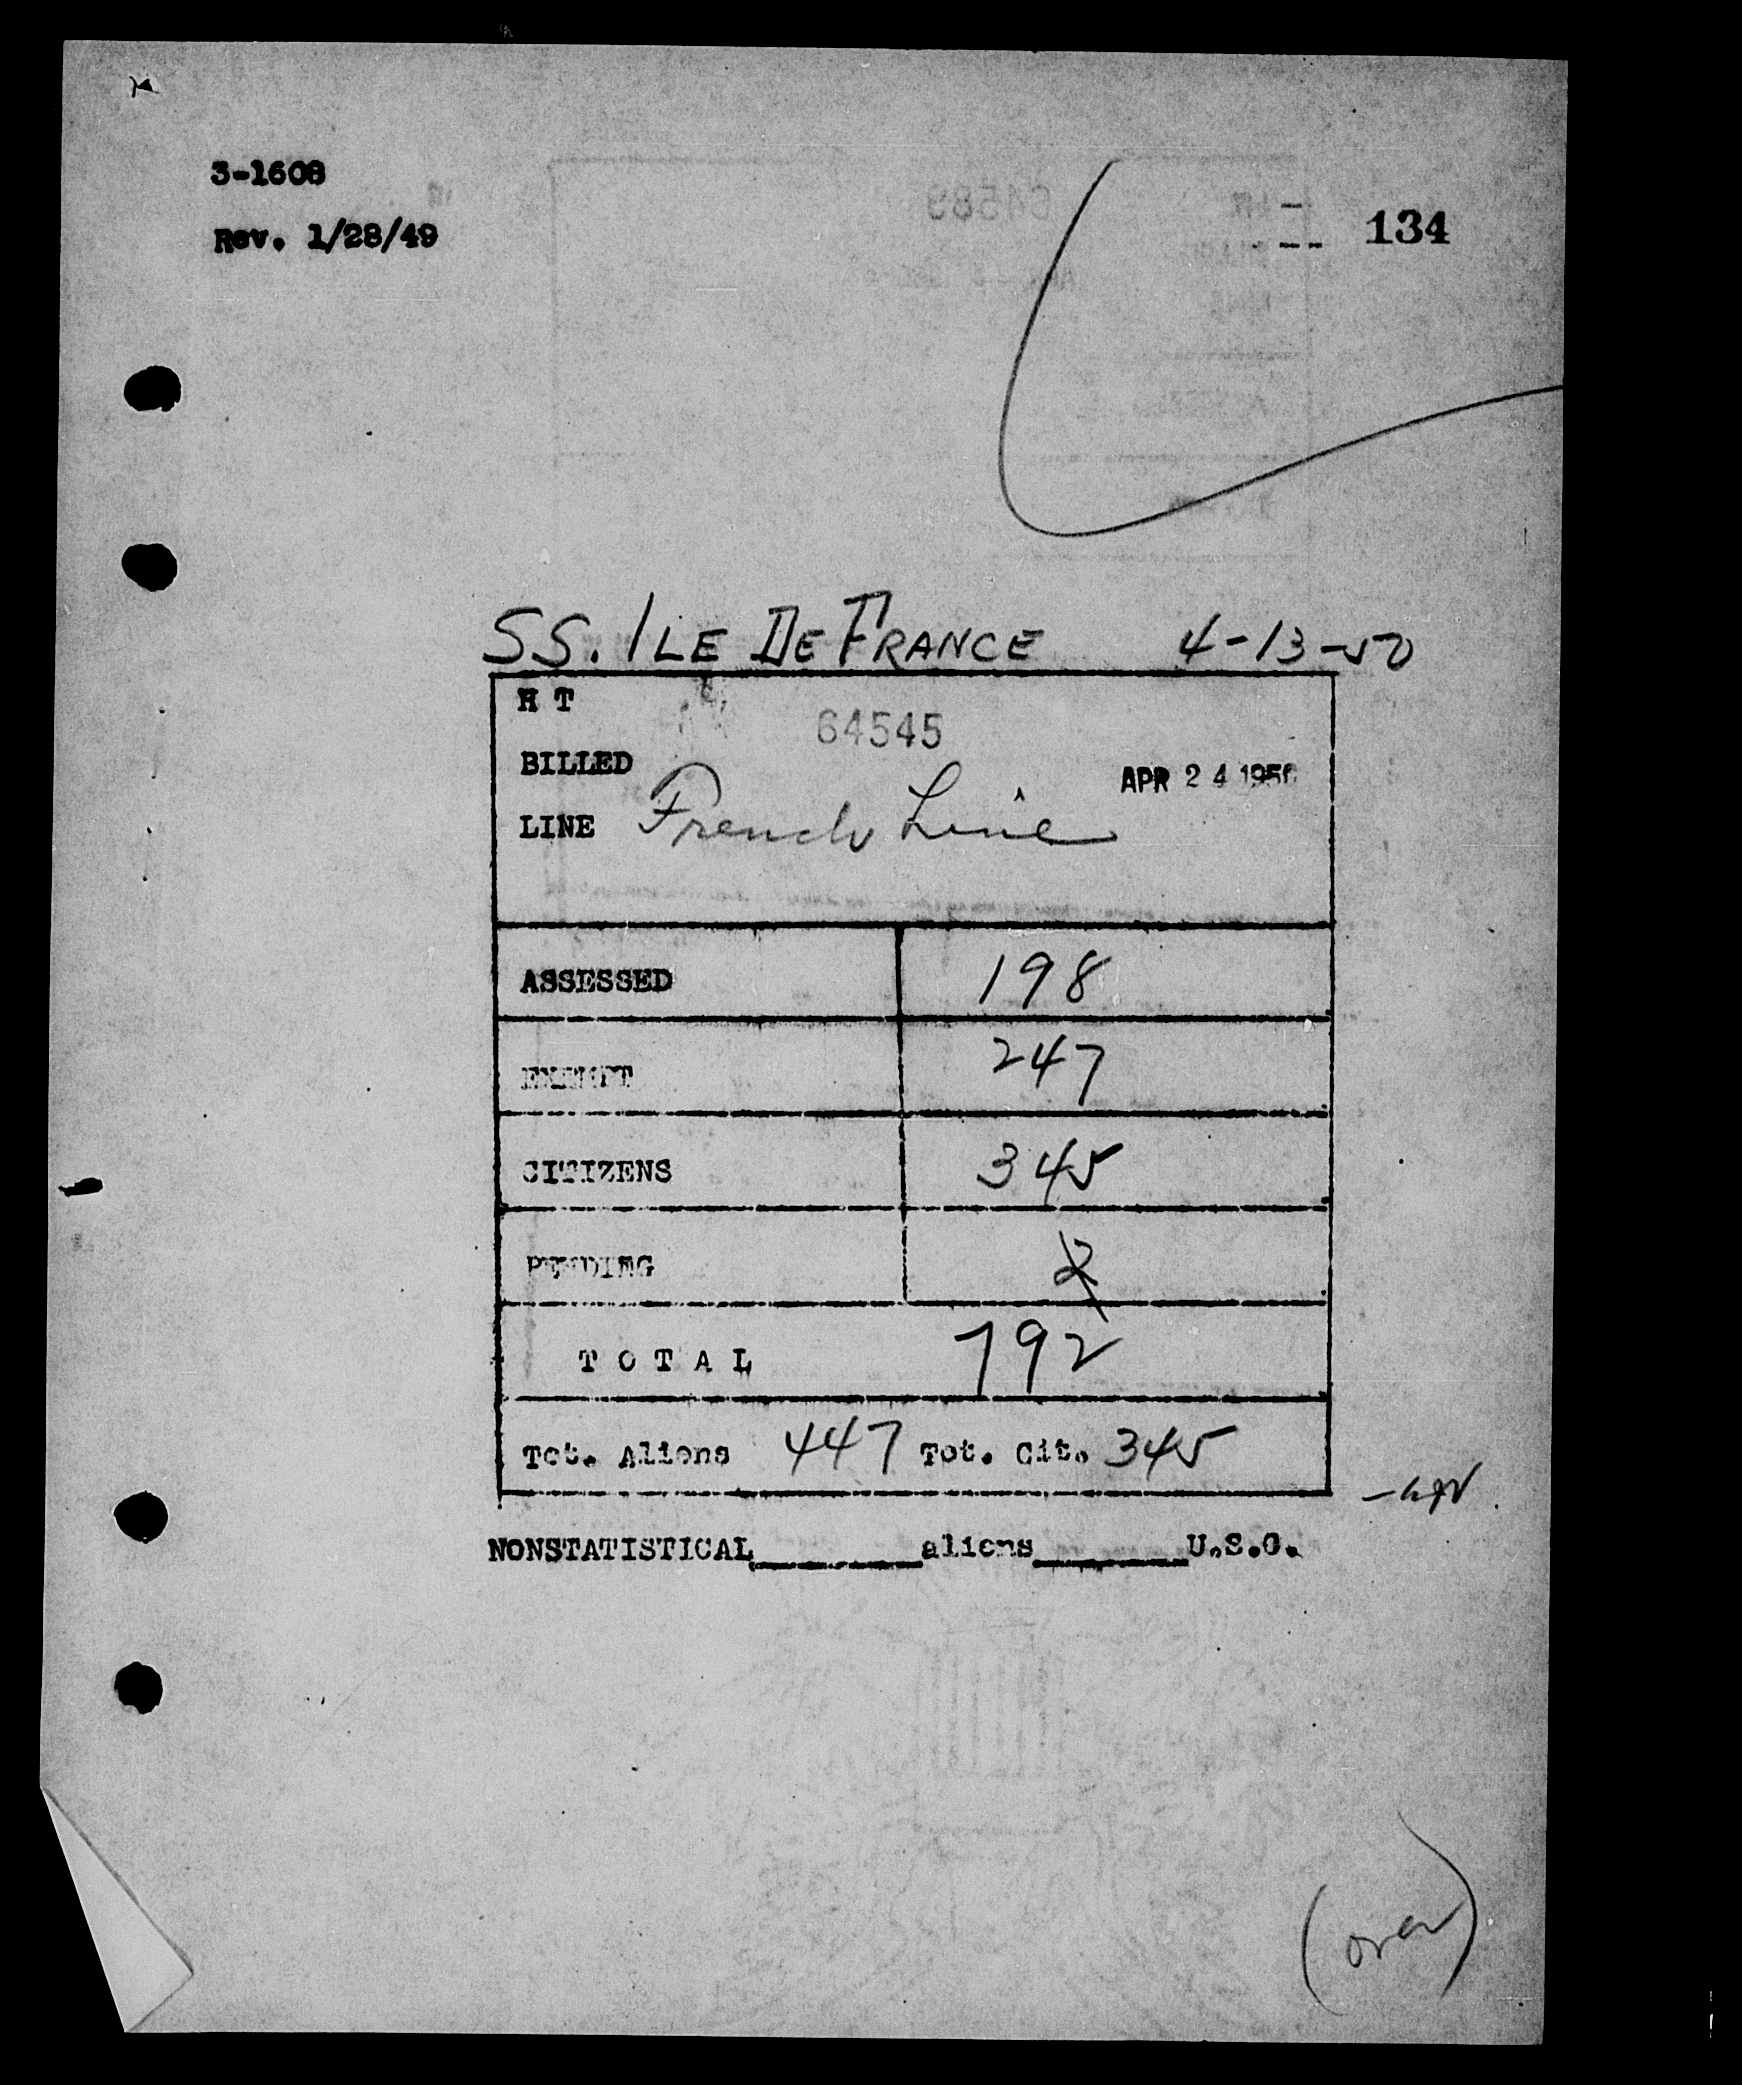 3-1608
134
Rev. 1/28/49
SS. ILE DE FRANCE 4-13-50
H T
64545
BILLED
APR 24 1950
LINE French Line
ASSESSED 198
EXEMPT 247
CITIZENS 345
PENDING 2
T O T A L 792
Tot. Aliens 447 Tot. Cit. 345
NONSTATISTICAL aliens U.S.C.
(over)